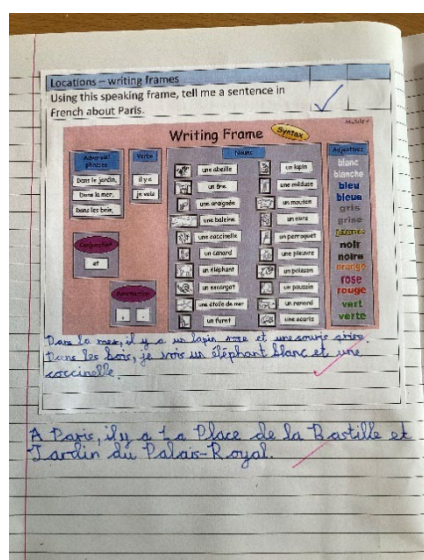 Locations – writing frames
Using this speaking frame, tell me a sentence in
French about Paris.
Writing Frame
Syntax
Adverbial
phrases
Verbs
Nouns
Adjectives
Dans le jardin,
Dans la mer,
Dans les bois,
il y a
je vois
Conjunction
et
Punctuation
, .
une abeille
un âne
une araignée
une baleine
une coccinelle
un canard
un éléphant
un escargot
une étoile de mer
un furet
un lapin
une méduse
un mouton
un ours
un perroquet
une pieuvre
un poisson
un poussin
un renard
une souris
blanc
blanche
bleu
bleue
gris
grise
jaune
noir
noire
orange
rose
rouge
vert
verte
Dans la mer, il y a un lapin rose et une souris grise.
Dans les bois, je vois un éléphant blanc et une
coccinelle.
A Paris, il y a La Place de la Bastille et
Jardin du Palais-Royal.